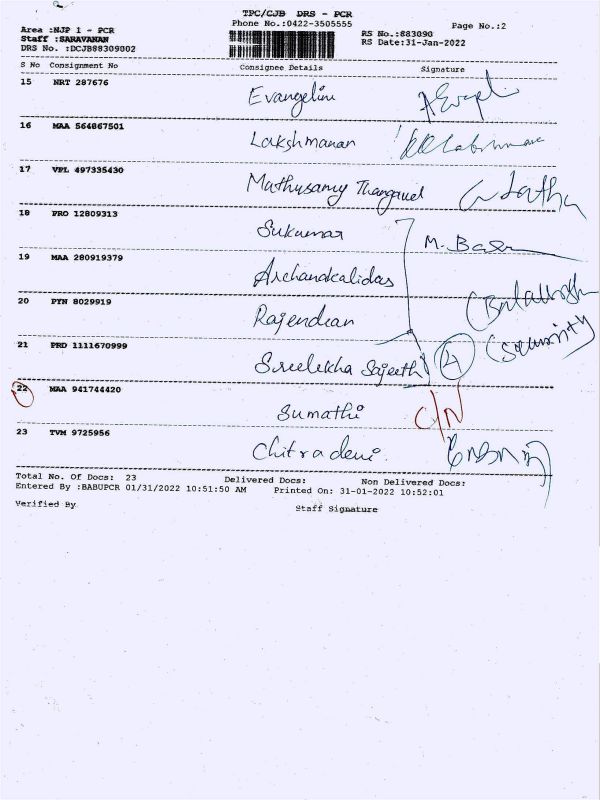 TPC/CJB DRS - PCR
Phone No.:0422-3505555
Page No.:2
Area :NJP 1 - PCR
Staff :SARAVANAN
DRS No. :DCJB88309002
RS No.:883090
RS Date:31-Jan-2022
S No Consignment No Consignee Details Signature
15 NRT 287676 Evangelin
16 MAA 564867501 Lakshmanan
17 VPL 497335430 Muthusamy Thangavel
18 PRO 12809313 Sukumar M.
19 MAA 280919379 Archanakalidas
20 PYN 8029919 Rajendran
21 PRD 1111670999 Sreelekha Sajeeth 4 (Security
22 MAA 941744420 Sumathi C/N
23 TVM 9725956 Chitradevi.
Total No. Of Docs: 23 Delivered Docs: Non Delivered Docs:
Entered By :BABUPCR 01/31/2022 10:51:50 AM Printed On: 31-01-2022 10:52:01
Verified By Staff Signature